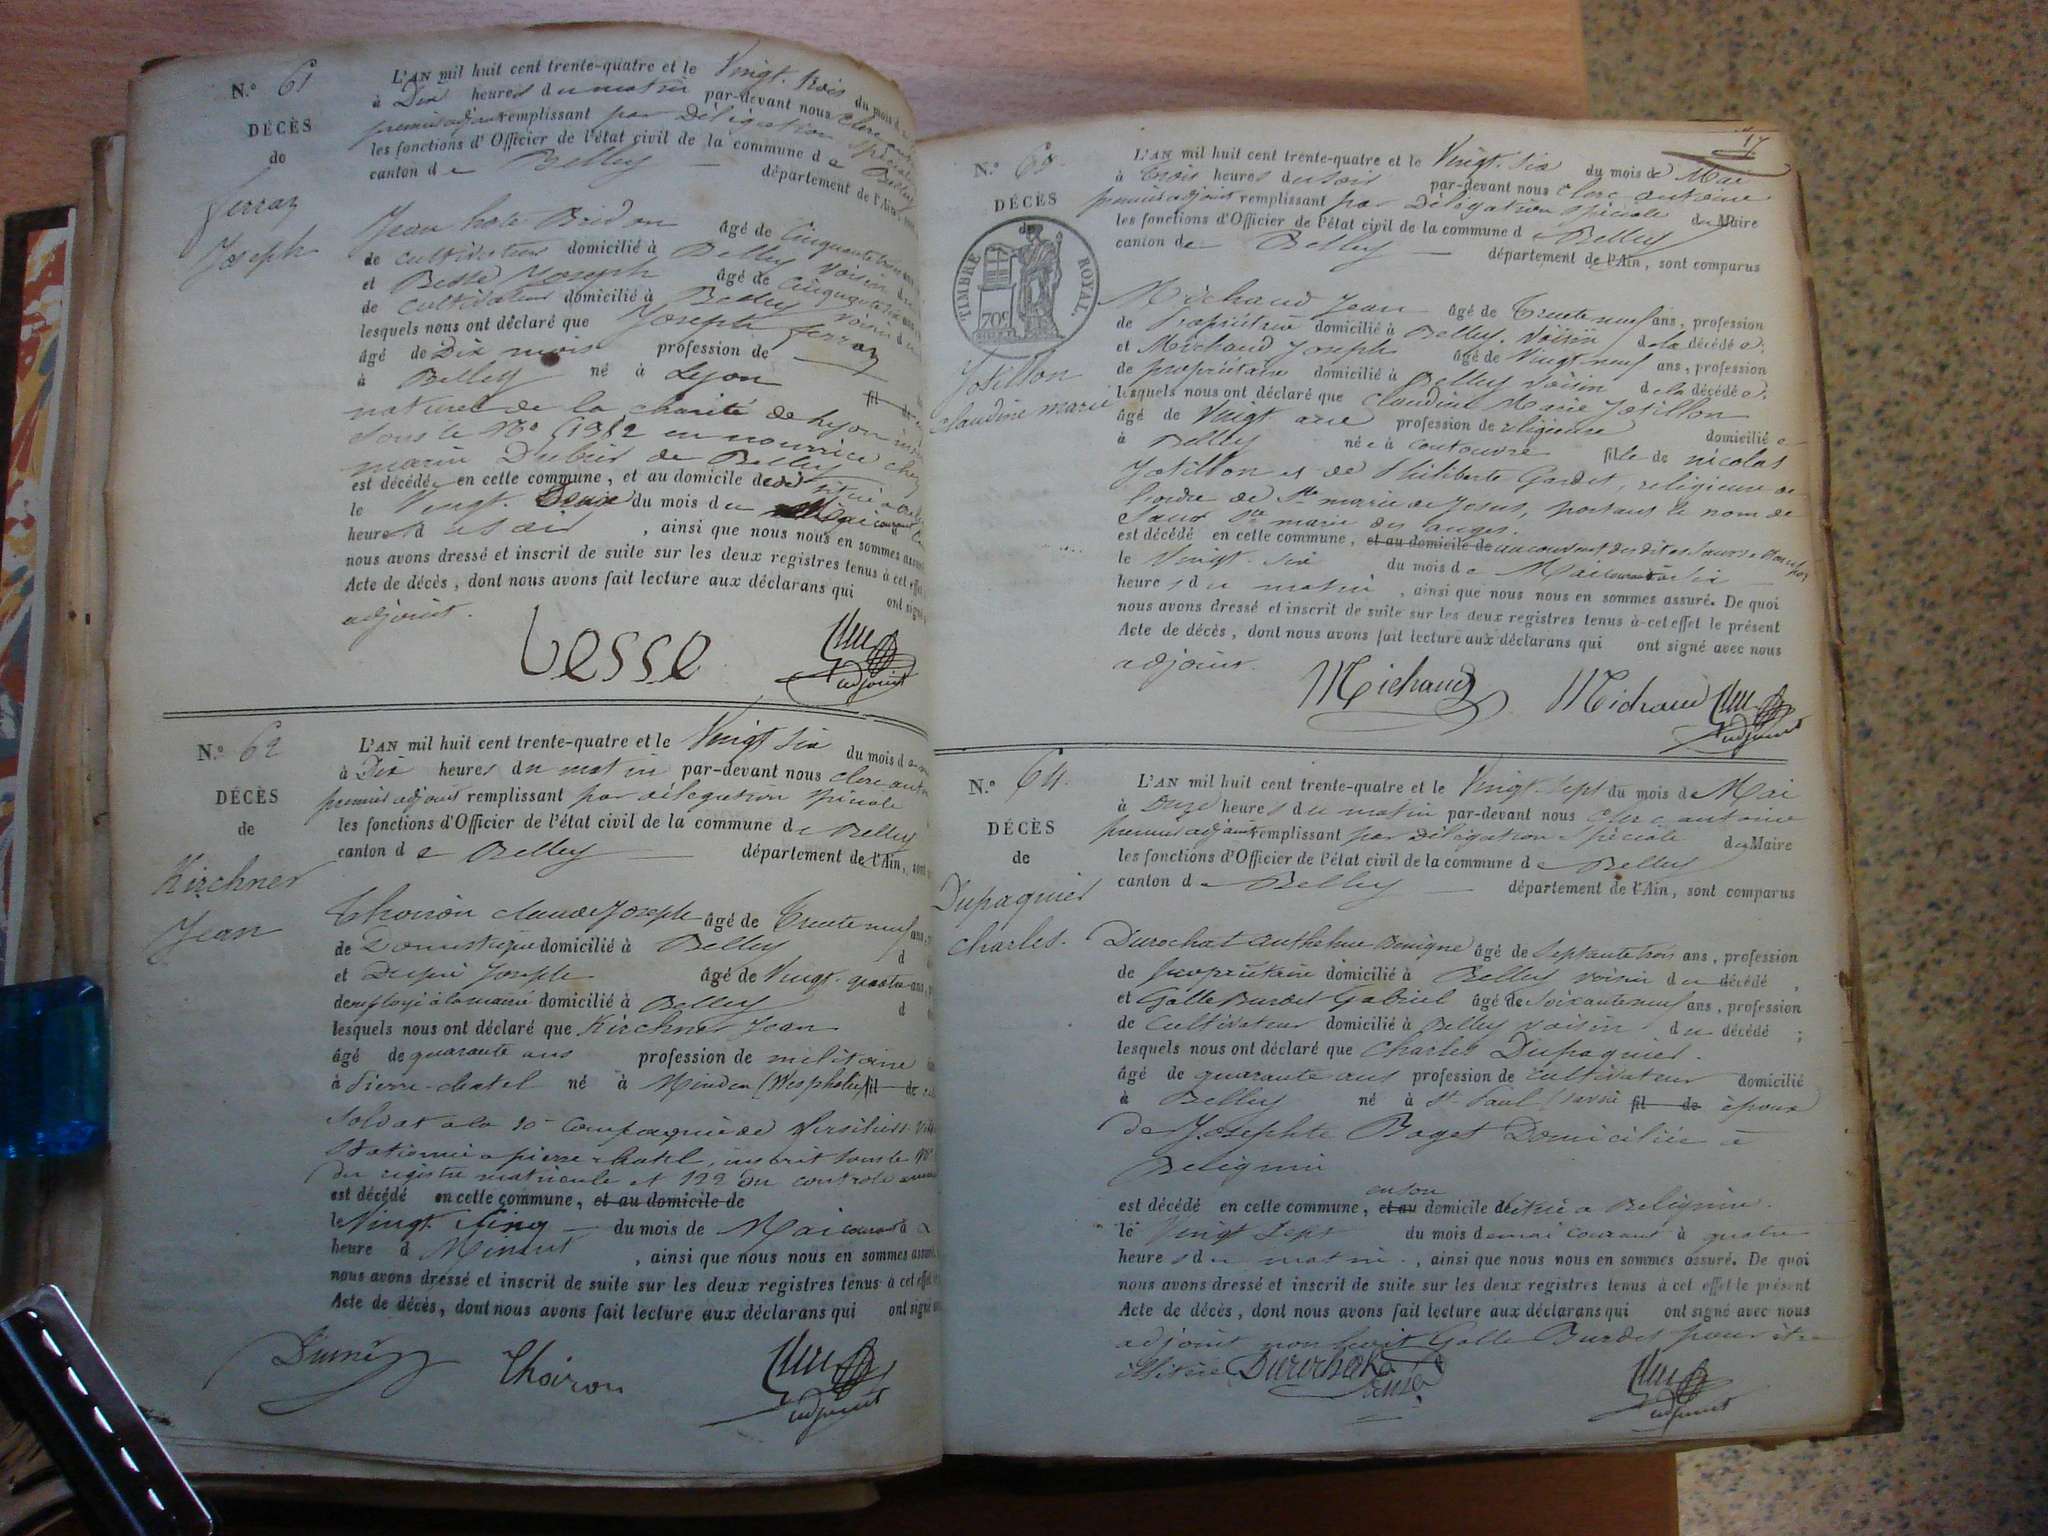 N.º 61
DÉCÈS
de
Ferraz
Joseph
L'AN mil huit cent trente-quatre et le Vingt-trois du mois d
à Dix heures du matin par-devant nous Clerc
premier adjoint remplissant par Délégation spéciale
les fonctions d'Officier de l'état civil de la commune de Belley
canton de Belley département de l'Ain,
Jean âgé de Cinquante
de cultivateur domicilié à Belley voisin
et Besse Joseph âgé de Cinquante
de cultivateur domicilié à Belley voisin
lesquels nous ont déclaré que Joseph ferraz
âgé de Dix mois profession de
à Belley né à Lyon fil de
naturel de la charité de Lyon
sous le N.º en nourrice chez
marie de Belley
est décédé en cette commune, et au domicile de situé à
le Vingt-Deux du mois de Mai courant
heures du soir, ainsi que nous nous en sommes
nous avons dressé et inscrit de suite sur les deux registres tenus à cet effet
Acte de décès, dont nous avons fait lecture aux déclarans qui ont signé
adjoint.
besse Clerc
adjoint
N.º 62
DÉCÈS
de
Kirchner
Jean
L'AN mil huit cent trente-quatre et le Vingt six du mois de
à Dix heures du matin par-devant nous clerc
premier adjoint remplissant par délégation spéciale
les fonctions d'Officier de l'état civil de la commune de Belley
canton de Belley département de l'Ain,
Thoiron claude Joseph âgé de Trente neuf ans,
de Domestique domicilié à Belley d
et Joseph âgé de Vingt-quatre ans,
de employé à la mairie domicilié à Belley d
lesquels nous ont déclaré que Kirchner Jean
âgé de quarante ans profession de militaire
à Pierre-chatel né à Minden (Westphalie) fil de
soldat à la 10e Compagnie de
Stationnée à pierre-chatel, inscrit sous le N.º
du registre matricule et 122 du controle
est décédé en cette commune, et au domicile de
le Vingt Cinq du mois de Mai courant à
heure d Minuit, ainsi que nous nous en sommes assuré.
nous avons dressé et inscrit de suite sur les deux registres tenus à cet effet
Acte de décès, dont nous avons fait lecture aux déclarans qui ont signé
Thoiron Clerc
adjoint
17
N.º 63
DÉCÈS
de
TIMBRE ROYAL.
70c
Jotillon
claudine marie
L'AN mil huit cent trente-quatre et le Vingt-Six du mois de Mai
à Trois heures du soir par-devant nous Clerc antoine
premier adjoint remplissant par Délégation spéciale du Maire
les fonctions d'Officier de l'état civil de la commune de Belley
canton de Belley département de l'Ain, sont comparus
Michaud Jean âgé de Trente neuf ans, profession
de Propriétaire domicilié à Belley. Voisin de la décédée;
et Michaud Joseph âgé de Vingt neuf ans, profession
de propriétaire domicilié à Belley voisin de la décédée;
lesquels nous ont déclaré que Claudine Marie Jotillon
âgé de Vingt ans profession de religieuse domicilié e
à Belley née à coutouvre fille de nicolas
Jotillon et de Philiberte Gardet, religieuse de
l'ordre de Ste marie de Jesus, portant le nom de
Sœur Ste marie des anges.
est décédé en cette commune, et au domicile de au couvent des dites Sœurs
le Vingt-six du mois de Mai courant à Six
heures du matin, ainsi que nous nous en sommes assuré. De quoi
nous avons dressé et inscrit de suite sur les deux registres tenus à cet effet le présent
Acte de décès, dont nous avons fait lecture aux déclarans qui ont signé avec nous
adjoint.
Michaud Michaud Clerc
adjoint
N.º 64.
DÉCÈS
de
Dupaquier
charles.
L'AN mil huit cent trente-quatre et le Vingt-Sept du mois de Mai
à onze heures du matin par-devant nous Clerc antoine
premier adjoint remplissant par Délégation Spéciale du Maire
les fonctions d'Officier de l'état civil de la commune de Belley
canton de Belley département de l'Ain, sont comparus
Durochat anthelme Benigne âgé de Septante trois ans, profession
de propriétaire domicilié à Belley voisin du décédé,
et Golle Burdet Gabriel âgé de Soixante neuf ans, profession
de Cultivateur domicilié à Belley voisin du décédé;
lesquels nous ont déclaré que Charles Dupaquier.
âgé de quarante ans profession de cultivateur domicilié
à Belley né à St Paul (Savoie fil de époux
de Josephte Boget Domiciliée à
Belignin
est décédé en cette commune, et au en son domicile de situé à Belignin.
le Vingt Sept du mois de mai courant à quatre
heures du matin, ainsi que nous nous en sommes assuré. De quoi
nous avons dressé et inscrit de suite sur les deux registres tenus à cet effet le présent
Acte de décès, dont nous avons fait lecture aux déclarans qui ont signé avec nous
adjoint non ledit Golle Burdet pour être
illitéré Durochat Clerc
adjoint